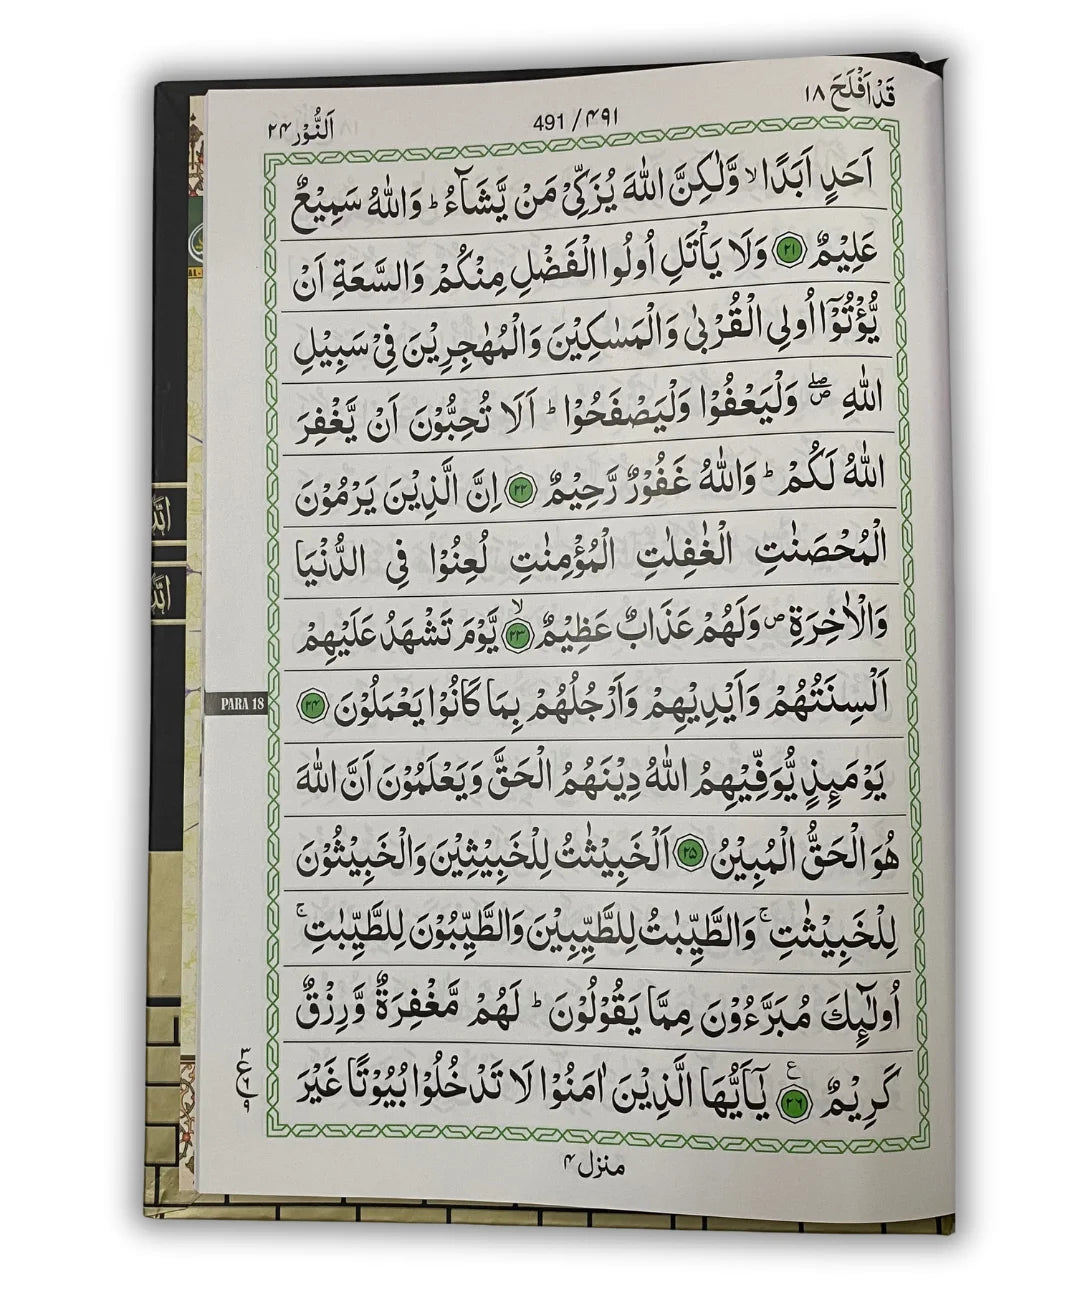 قَدْ اَفْلَحَ ۱۸
491 / ۴۹۱
اَلنُّوْر ۲۴
اَحَدٍ اَبَدًا ۙ وَّلٰكِنَّ اللّٰهَ يُزَكِّيْ مَنْ يَّشَآءُ ؕ وَاللّٰهُ سَمِيْعٌ
عَلِيْمٌ ﴿۲۱﴾ وَلَا يَاْتَلِ اُولُوا الْفَضْلِ مِنْكُمْ وَالسَّعَةِ اَنْ
يُّؤْتُوْۤا اُولِى الْقُرْبٰى وَالْمَسٰكِيْنَ وَالْمُهٰجِرِيْنَ فِيْ سَبِيْلِ
اللّٰهِ ۪ۖ وَلْيَعْفُوْا وَلْيَصْفَحُوْا ؕ اَلَا تُحِبُّوْنَ اَنْ يَّغْفِرَ
اللّٰهُ لَكُمْ ؕ وَاللّٰهُ غَفُوْرٌ رَّحِيْمٌ ﴿۲۲﴾ اِنَّ الَّذِيْنَ يَرْمُوْنَ
الْمُحْصَنٰتِ الْغٰفِلٰتِ الْمُؤْمِنٰتِ لُعِنُوْا فِى الدُّنْيَا
وَالْاٰخِرَةِ ۪ وَلَهُمْ عَذَابٌ عَظِيْمٌ ۙ﴿۲۳﴾ يَّوْمَ تَشْهَدُ عَلَيْهِمْ
اَلْسِنَتُهُمْ وَاَيْدِيْهِمْ وَاَرْجُلُهُمْ بِمَا كَانُوْا يَعْمَلُوْنَ ﴿۲۴﴾
يَوْمَىِٕذٍ يُّوَفِّيْهِمُ اللّٰهُ دِيْنَهُمُ الْحَقَّ وَيَعْلَمُوْنَ اَنَّ اللّٰهَ
هُوَ الْحَقُّ الْمُبِيْنُ ﴿۲۵﴾ اَلْخَبِيْثٰتُ لِلْخَبِيْثِيْنَ وَالْخَبِيْثُوْنَ
لِلْخَبِيْثٰتِ ۚ وَالطَّيِّبٰتُ لِلطَّيِّبِيْنَ وَالطَّيِّبُوْنَ لِلطَّيِّبٰتِ ۚ
اُولٰٓىِٕكَ مُبَرَّءُوْنَ مِمَّا يَقُوْلُوْنَ ؕ لَهُمْ مَّغْفِرَةٌ وَّرِزْقٌ
كَرِيْمٌ ﴿۲۶﴾ ع يٰۤاَيُّهَا الَّذِيْنَ اٰمَنُوْا لَا تَدْخُلُوْا بُيُوْتًا غَيْرَ
PARA 18
۳ ع ۶ ۹
منزل ۴